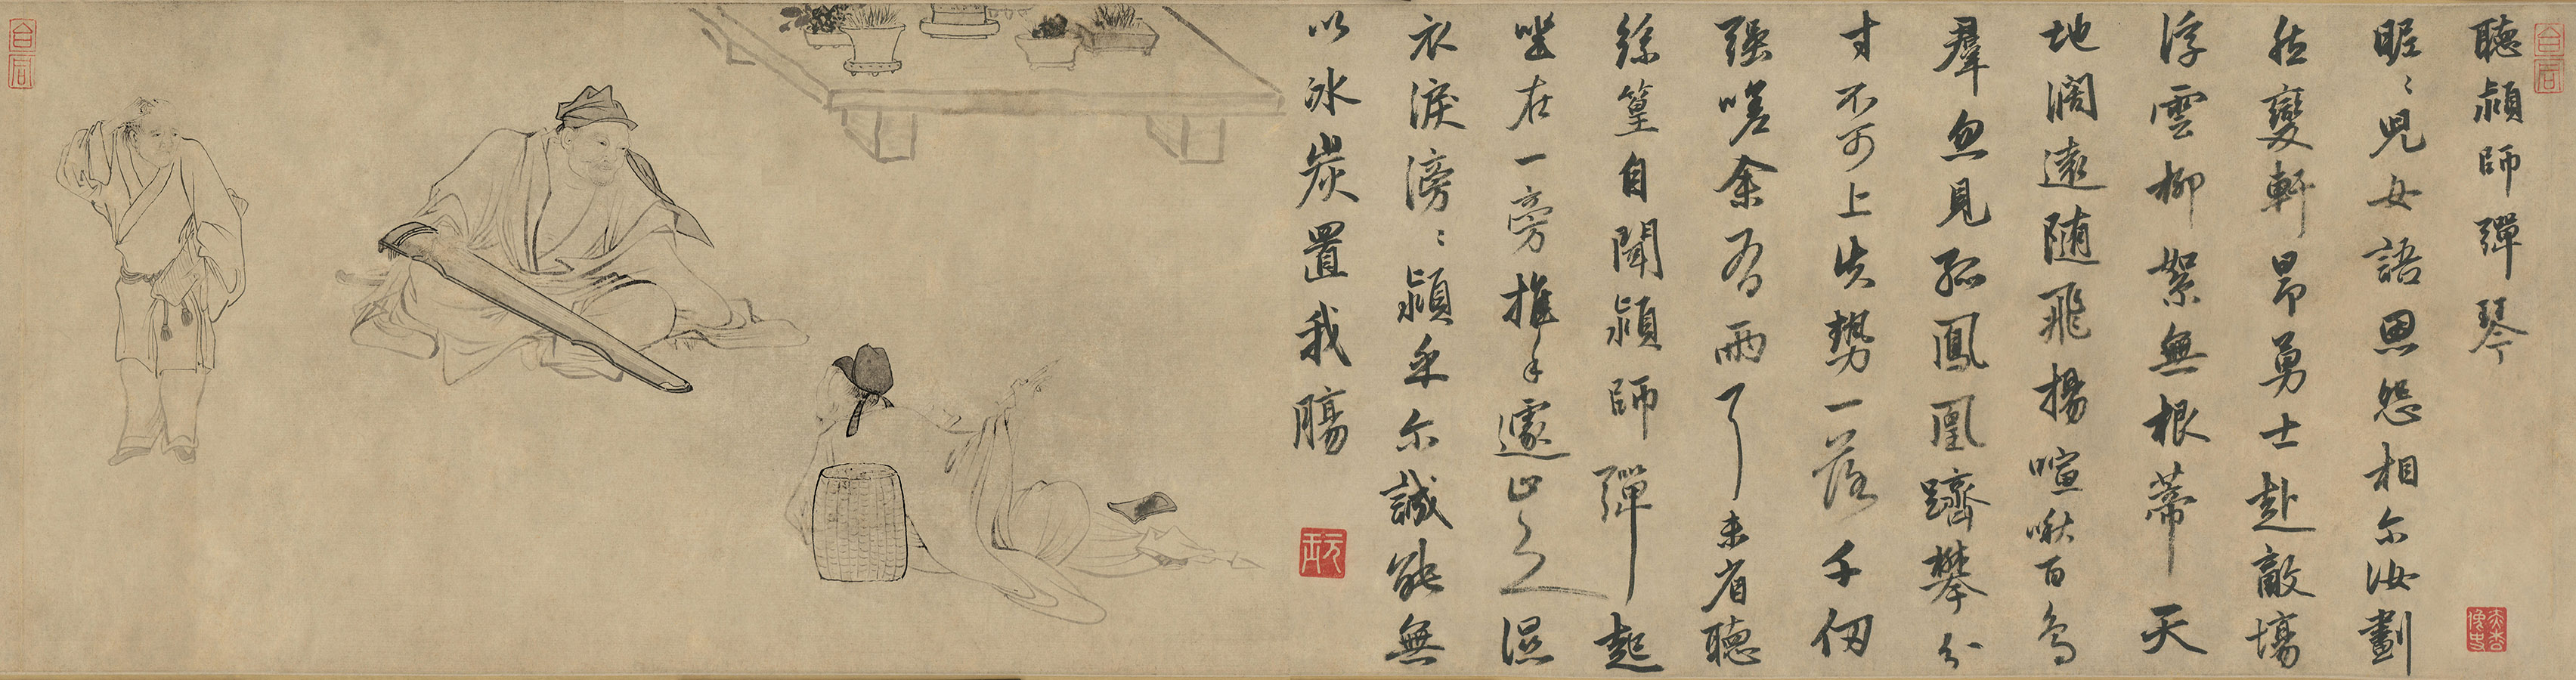 合同
聽頴師彈琴
昵〻兒女語恩怨相尔汝劃
然變軒昂勇士赴敵場
浮雲柳絮無根蒂天
地闊遠随飛揚喧啾百鳥
羣忽見孤鳳凰躋攀分
寸不可上失勢一落千仞
强嗟余有兩耳未省聽
絲篁自聞頴師彈起
坐在一旁推手遽止之濕
衣淚滂〻頴乎尔誠能無
以冰炭置我腸
合同